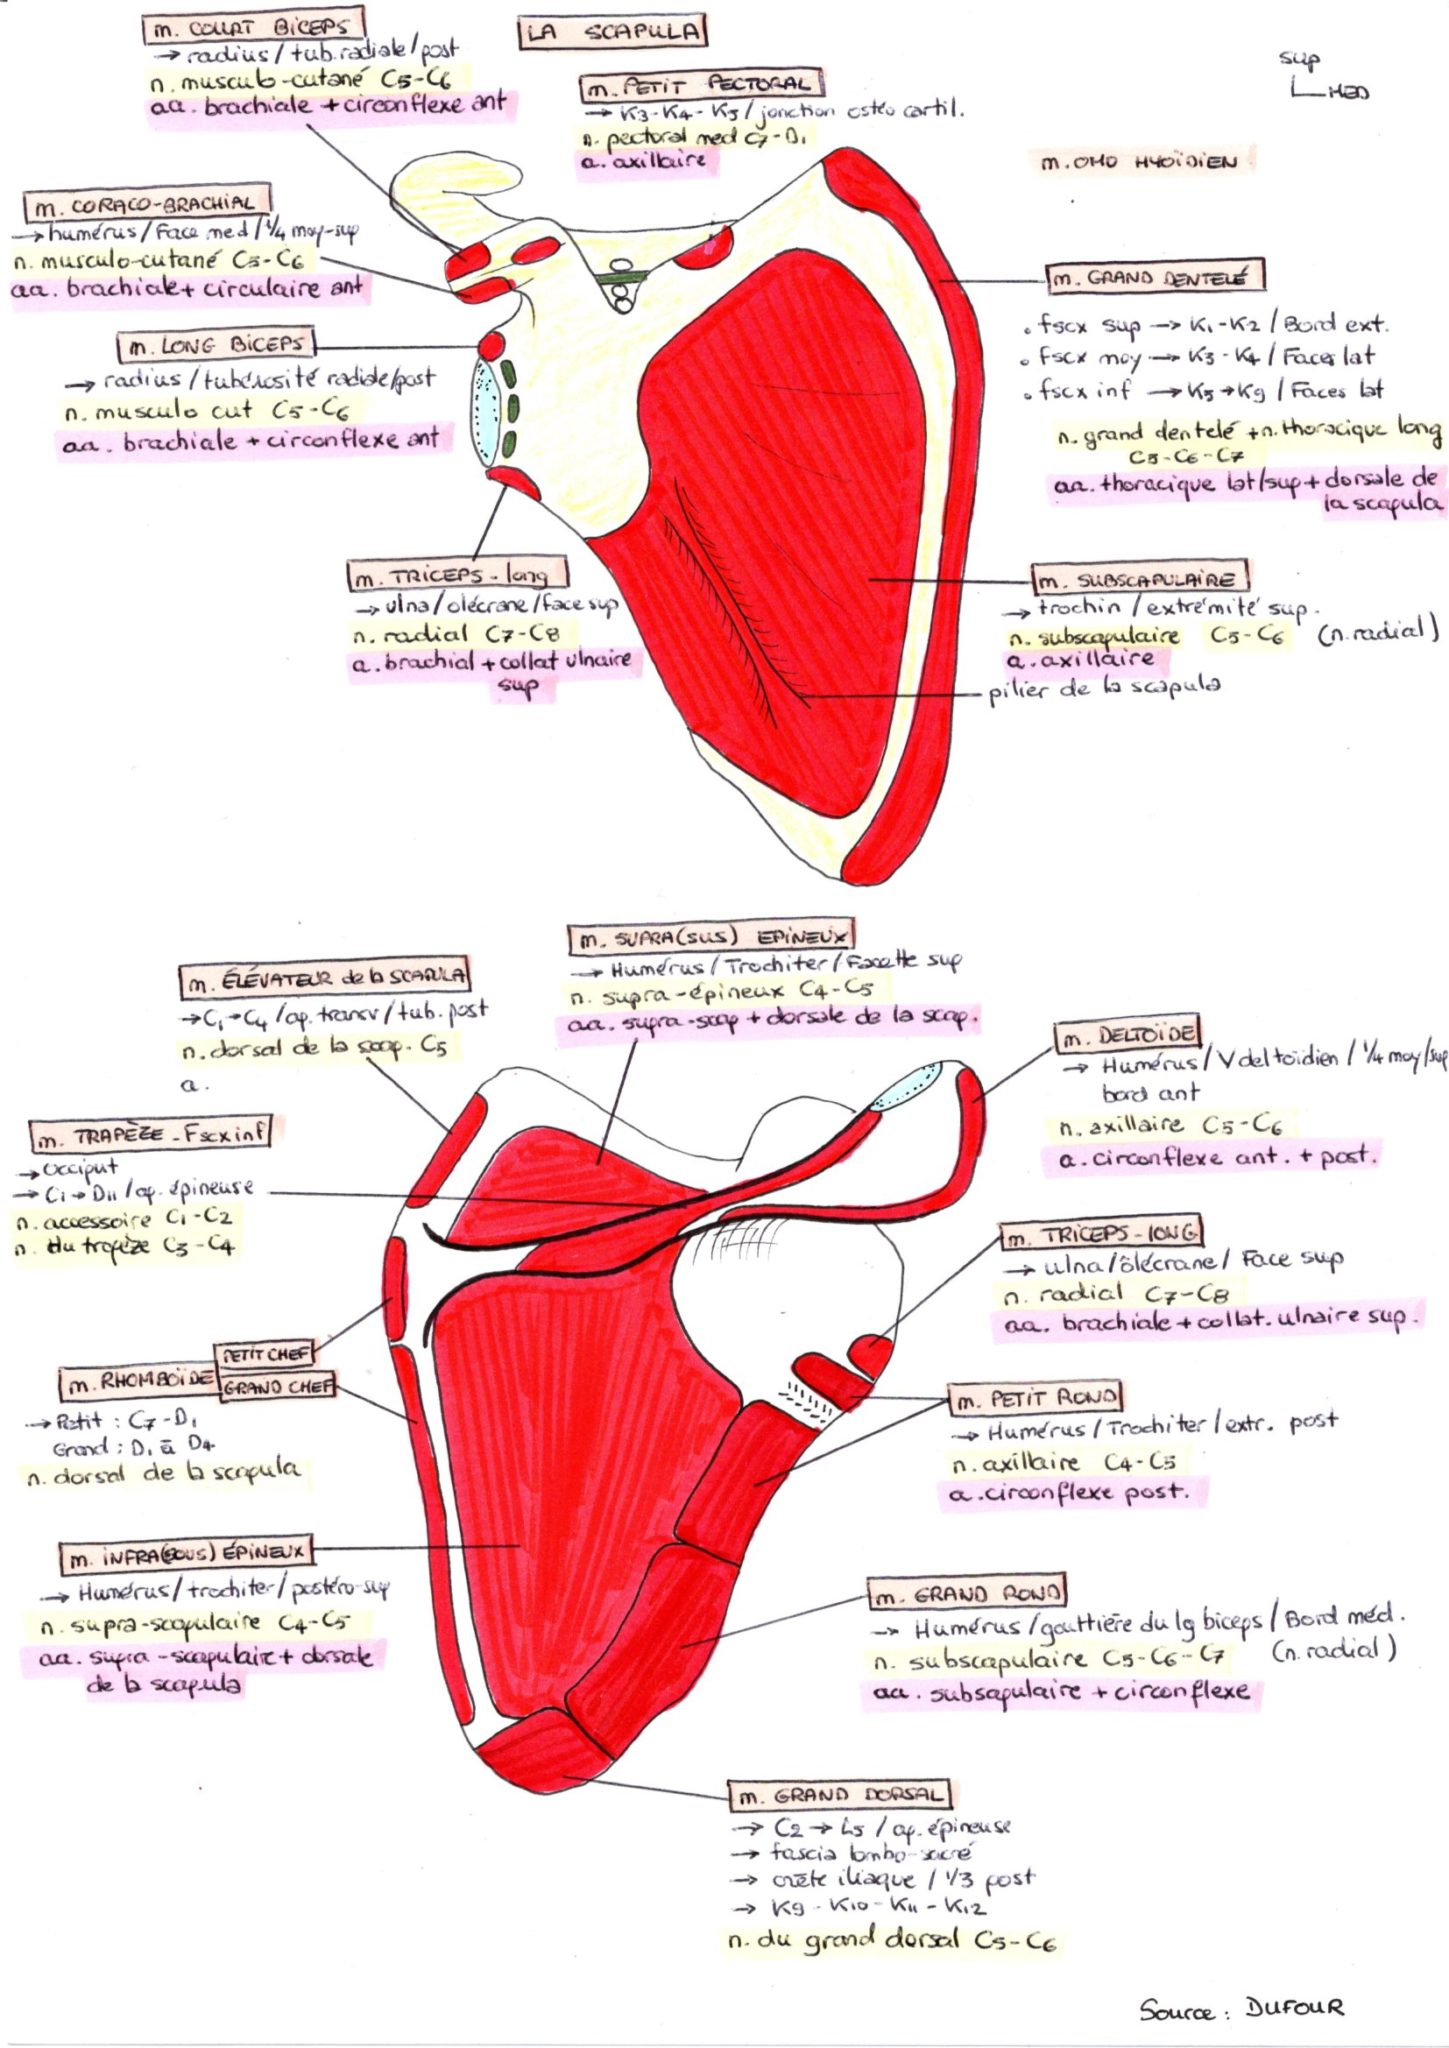 LA SCAPULA
sup
MED
m. COURT BICEPS
→ radius / tub.radiale/post
n. musculo-cutané C5-C6
aa. brachiale + circonflexe ant
m. PETIT PECTORAL
→ K3-K4-K5 / jonction ostéo cartil.
n. pectoral med C7-D1
a. axillaire
m. OMO HYOÏDIEN
m. CORACO-BRACHIAL
→ humérus / Face med / 1/4 moy-sup
n. musculo-cutané C5-C6
aa. brachiale + circulaire ant
m. GRAND DENTELÉ
• fscx sup → K1-K2 / Bord ext.
• fscx moy → K3-K4 / Faces lat
• fscx inf → K5→K9 / Faces lat
n. grand dentelé + n. thoracique long
C5-C6-C7
aa. thoracique lat/sup + dorsale de
la scapula
m. LONG BICEPS
→ radius / tubérosité radiale/post
n. musculo cut C5-C6
aa. brachiale + circonflexe ant
m. TRICEPS-long
→ ulna/olécrane/face sup
n. radial C7-C8
a. brachial + collat ulnaire
sup
m. SUBSCAPULAIRE
→ trochin / extrémité sup.
n. subscapulaire C5-C6 (n.radial)
a. axillaire
pilier de la scapula
m. SUPRA(SUS) EPINEUX
→ Humérus / Trochiter / Facette sup
n. supra-épineux C4-C5
aa. supra-scap + dorsale de la scap.
m. ÉLÉVATEUR de la SCAPULA
→ C1→C4 / ap. transv / tub. post
n. dorsal de la scap. C5
a.
m. DELTOÏDE
→ Humérus / V deltoïdien / 1/4 moy/sup
bord ant
n. axillaire C5-C6
a. circonflexe ant. + post.
m. TRAPÈZE - Fscx inf
→ occiput
→ C1→D11 / ap. épineuse
n. accessoire C1-C2
n. du trapèze C3-C4
m. TRICEPS-lONG
→ ulna/ôlécrane/ Face sup
n. radial C7-C8
aa. brachiale + collat. ulnaire sup.
PETIT CHEF
m. RHOMBOÏDE GRAND CHEF
→ Petit : C7-D1
Grand : D1 à D4
n. dorsal de la scapula
m. PETIT ROND
→ Humérus / Trochiter / extr. post
n. axillaire C4-C5
a. circonflexe post.
m. INFRA(SOUS) ÉPINEUX
→ Humérus / trochiter / postéro-sup
n. supra-scapulaire C4-C5
aa. supra-scapulaire + dorsale
de la scapula
m. GRAND ROND
→ Humérus / gouttière du lg biceps / Bord méd.
n. subscapulaire C5-C6-C7 (n.radial)
aa. subsapulaire + circonflexe
m. GRAND DORSAL
→ C2 → L5 / ap. épineuse
→ fascia lombo-sacré
→ crête iliaque / 1/3 post
→ K9 - K10 - K11 - K12
n. du grand dorsal C5-C6
Source : DUFOUR